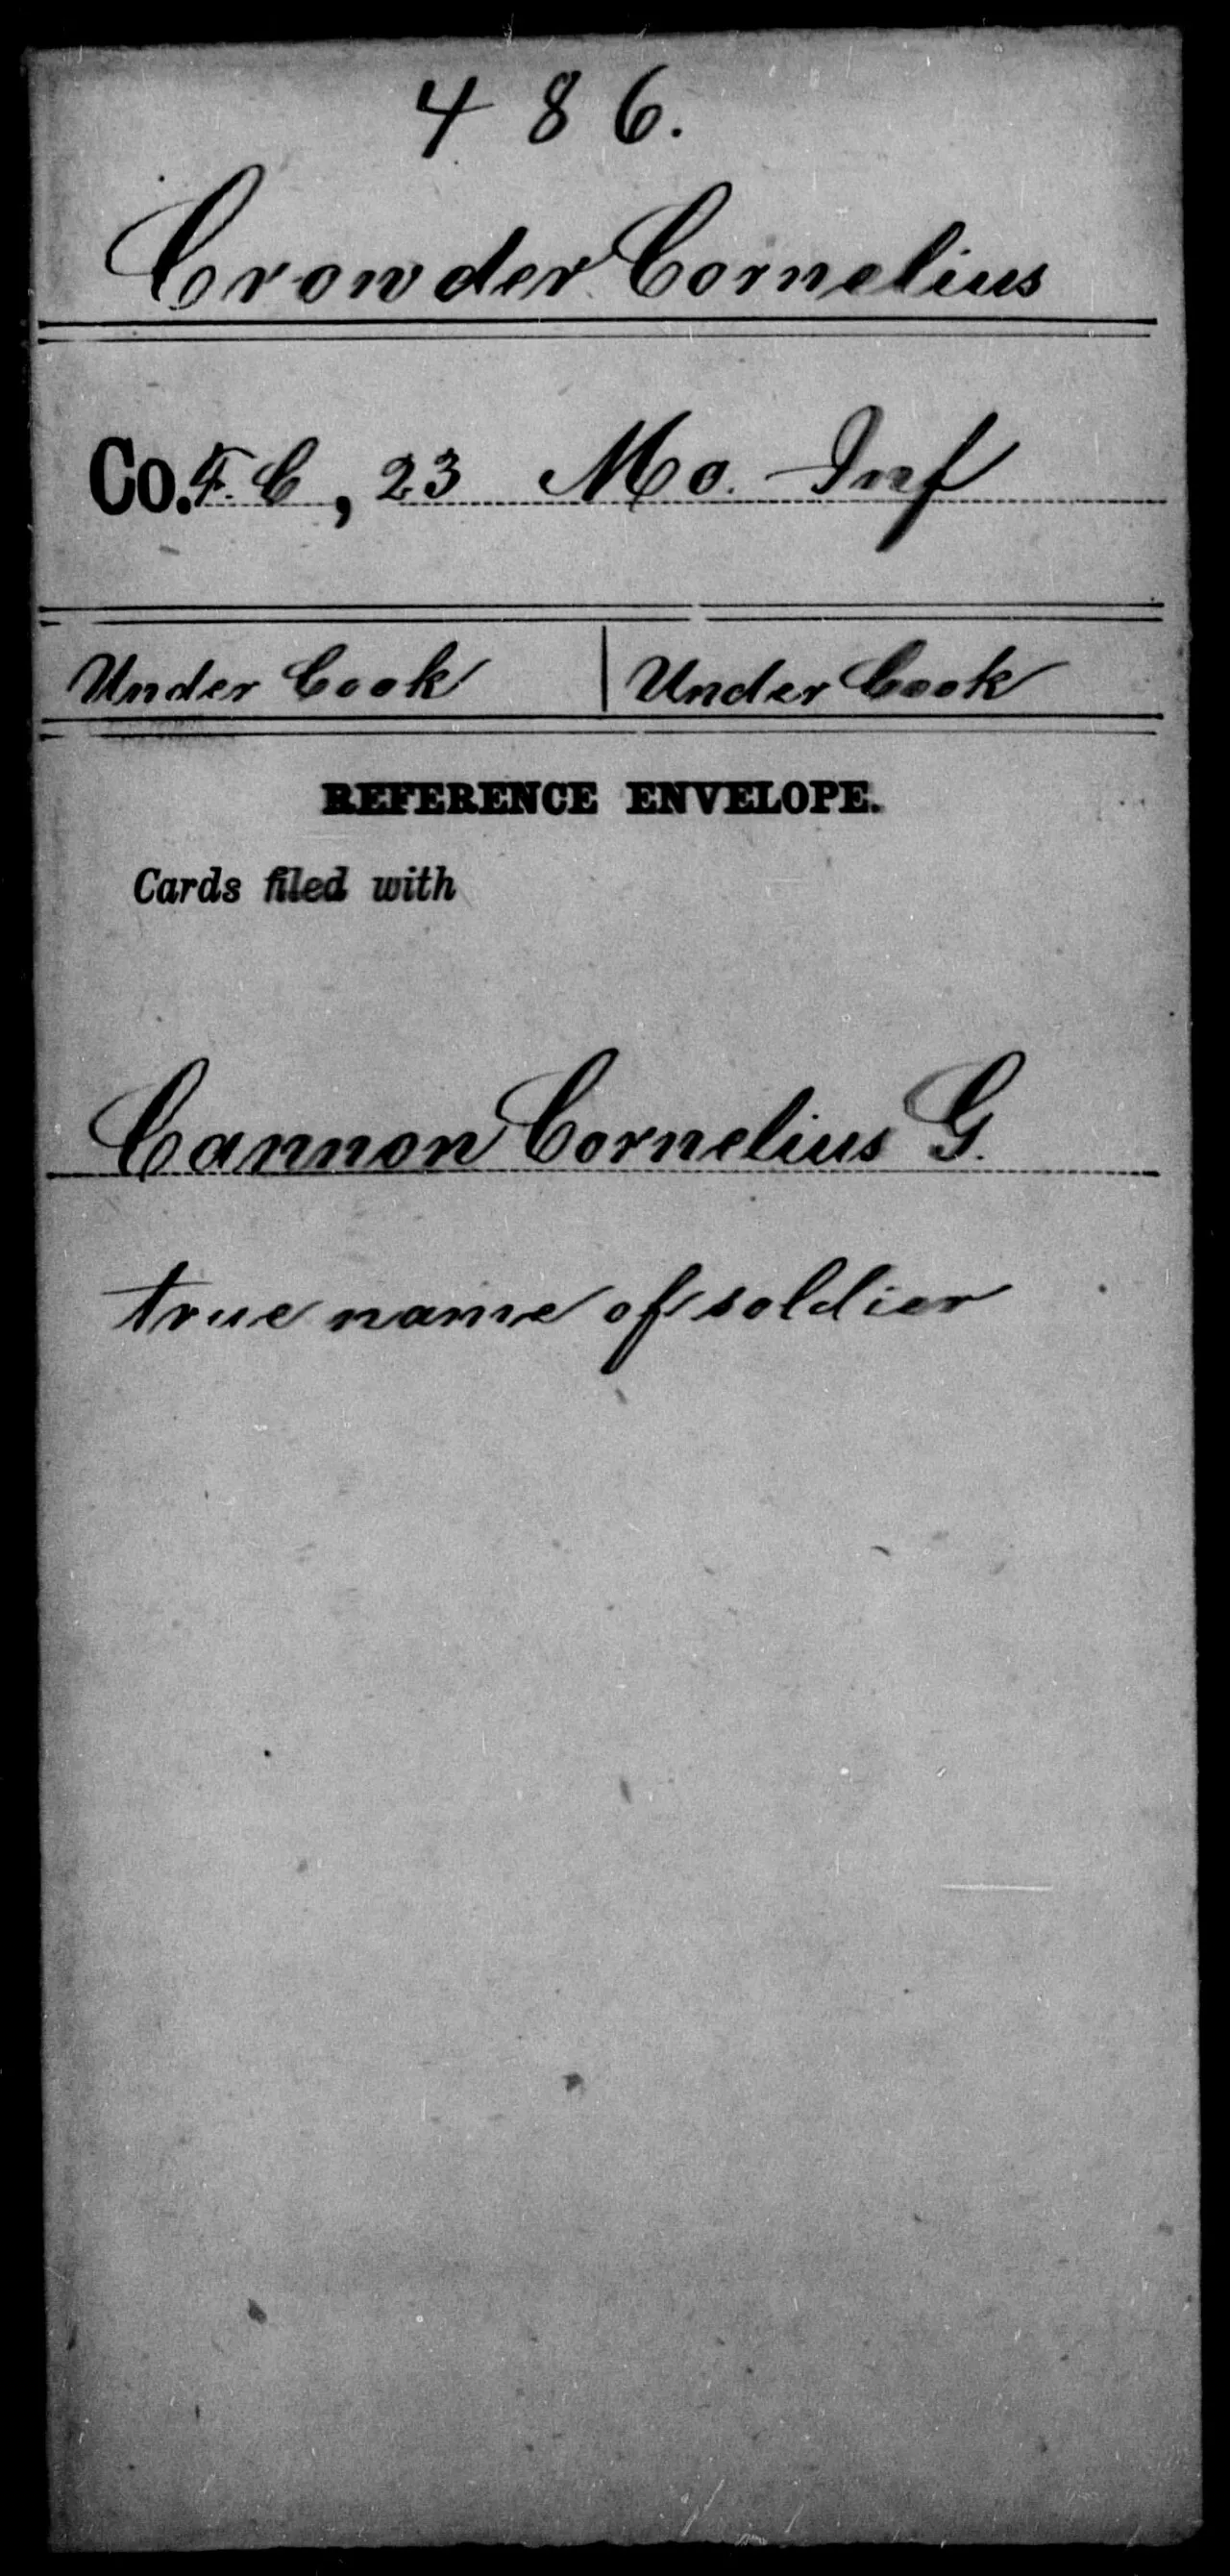 486.
Crowder Cornelius
Co. F. C, 23 Mo. Inf
Under Cook | Under Cook
REFERENCE ENVELOPE.
Cards filed with
Cannon Cornelius G.
true name of soldier